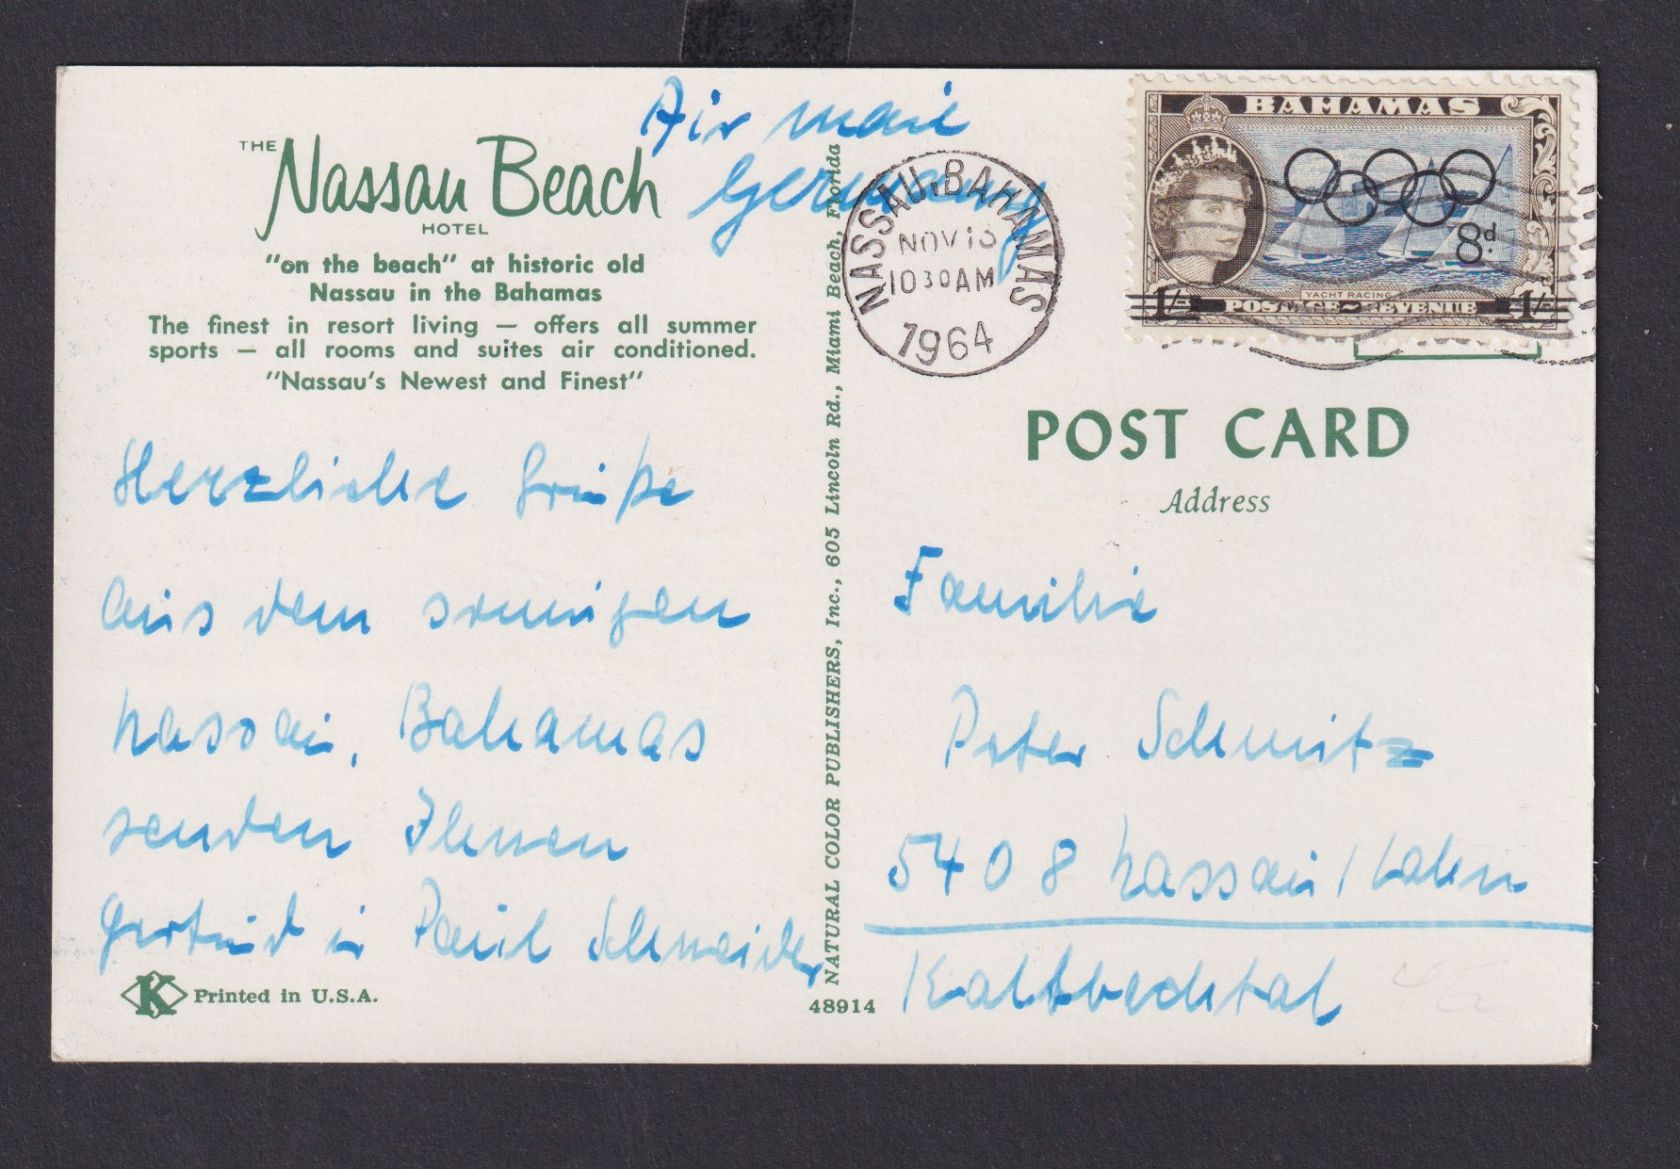 Air mail
Germany
THE Nassau Beach
HOTEL
"on the beach" at historic old
Nassau in the Bahamas
The finest in resort living — offers all summer
sports — all rooms and suites air conditioned.
"Nassau's Newest and Finest"
Herzliche Grüße
aus dem sonnigen
Nassau, Bahamas
senden Ihnen
Gertrud u Paul Schneider
K Printed in U.S.A.
NATURAL COLOR PUBLISHERS, Inc., 605 Lincoln Rd., Miami Beach, Florida
48914
NASSAU. BAHAMAS
NOV 13
10 30 AM
1964
BAHAMAS
8d.
YACHT RACING
1/- POSTAGE REVENUE 1/-
POST CARD
Address
Familie
Peter Schmitz
5408 Nassau / Lahn
Kaltbachtal